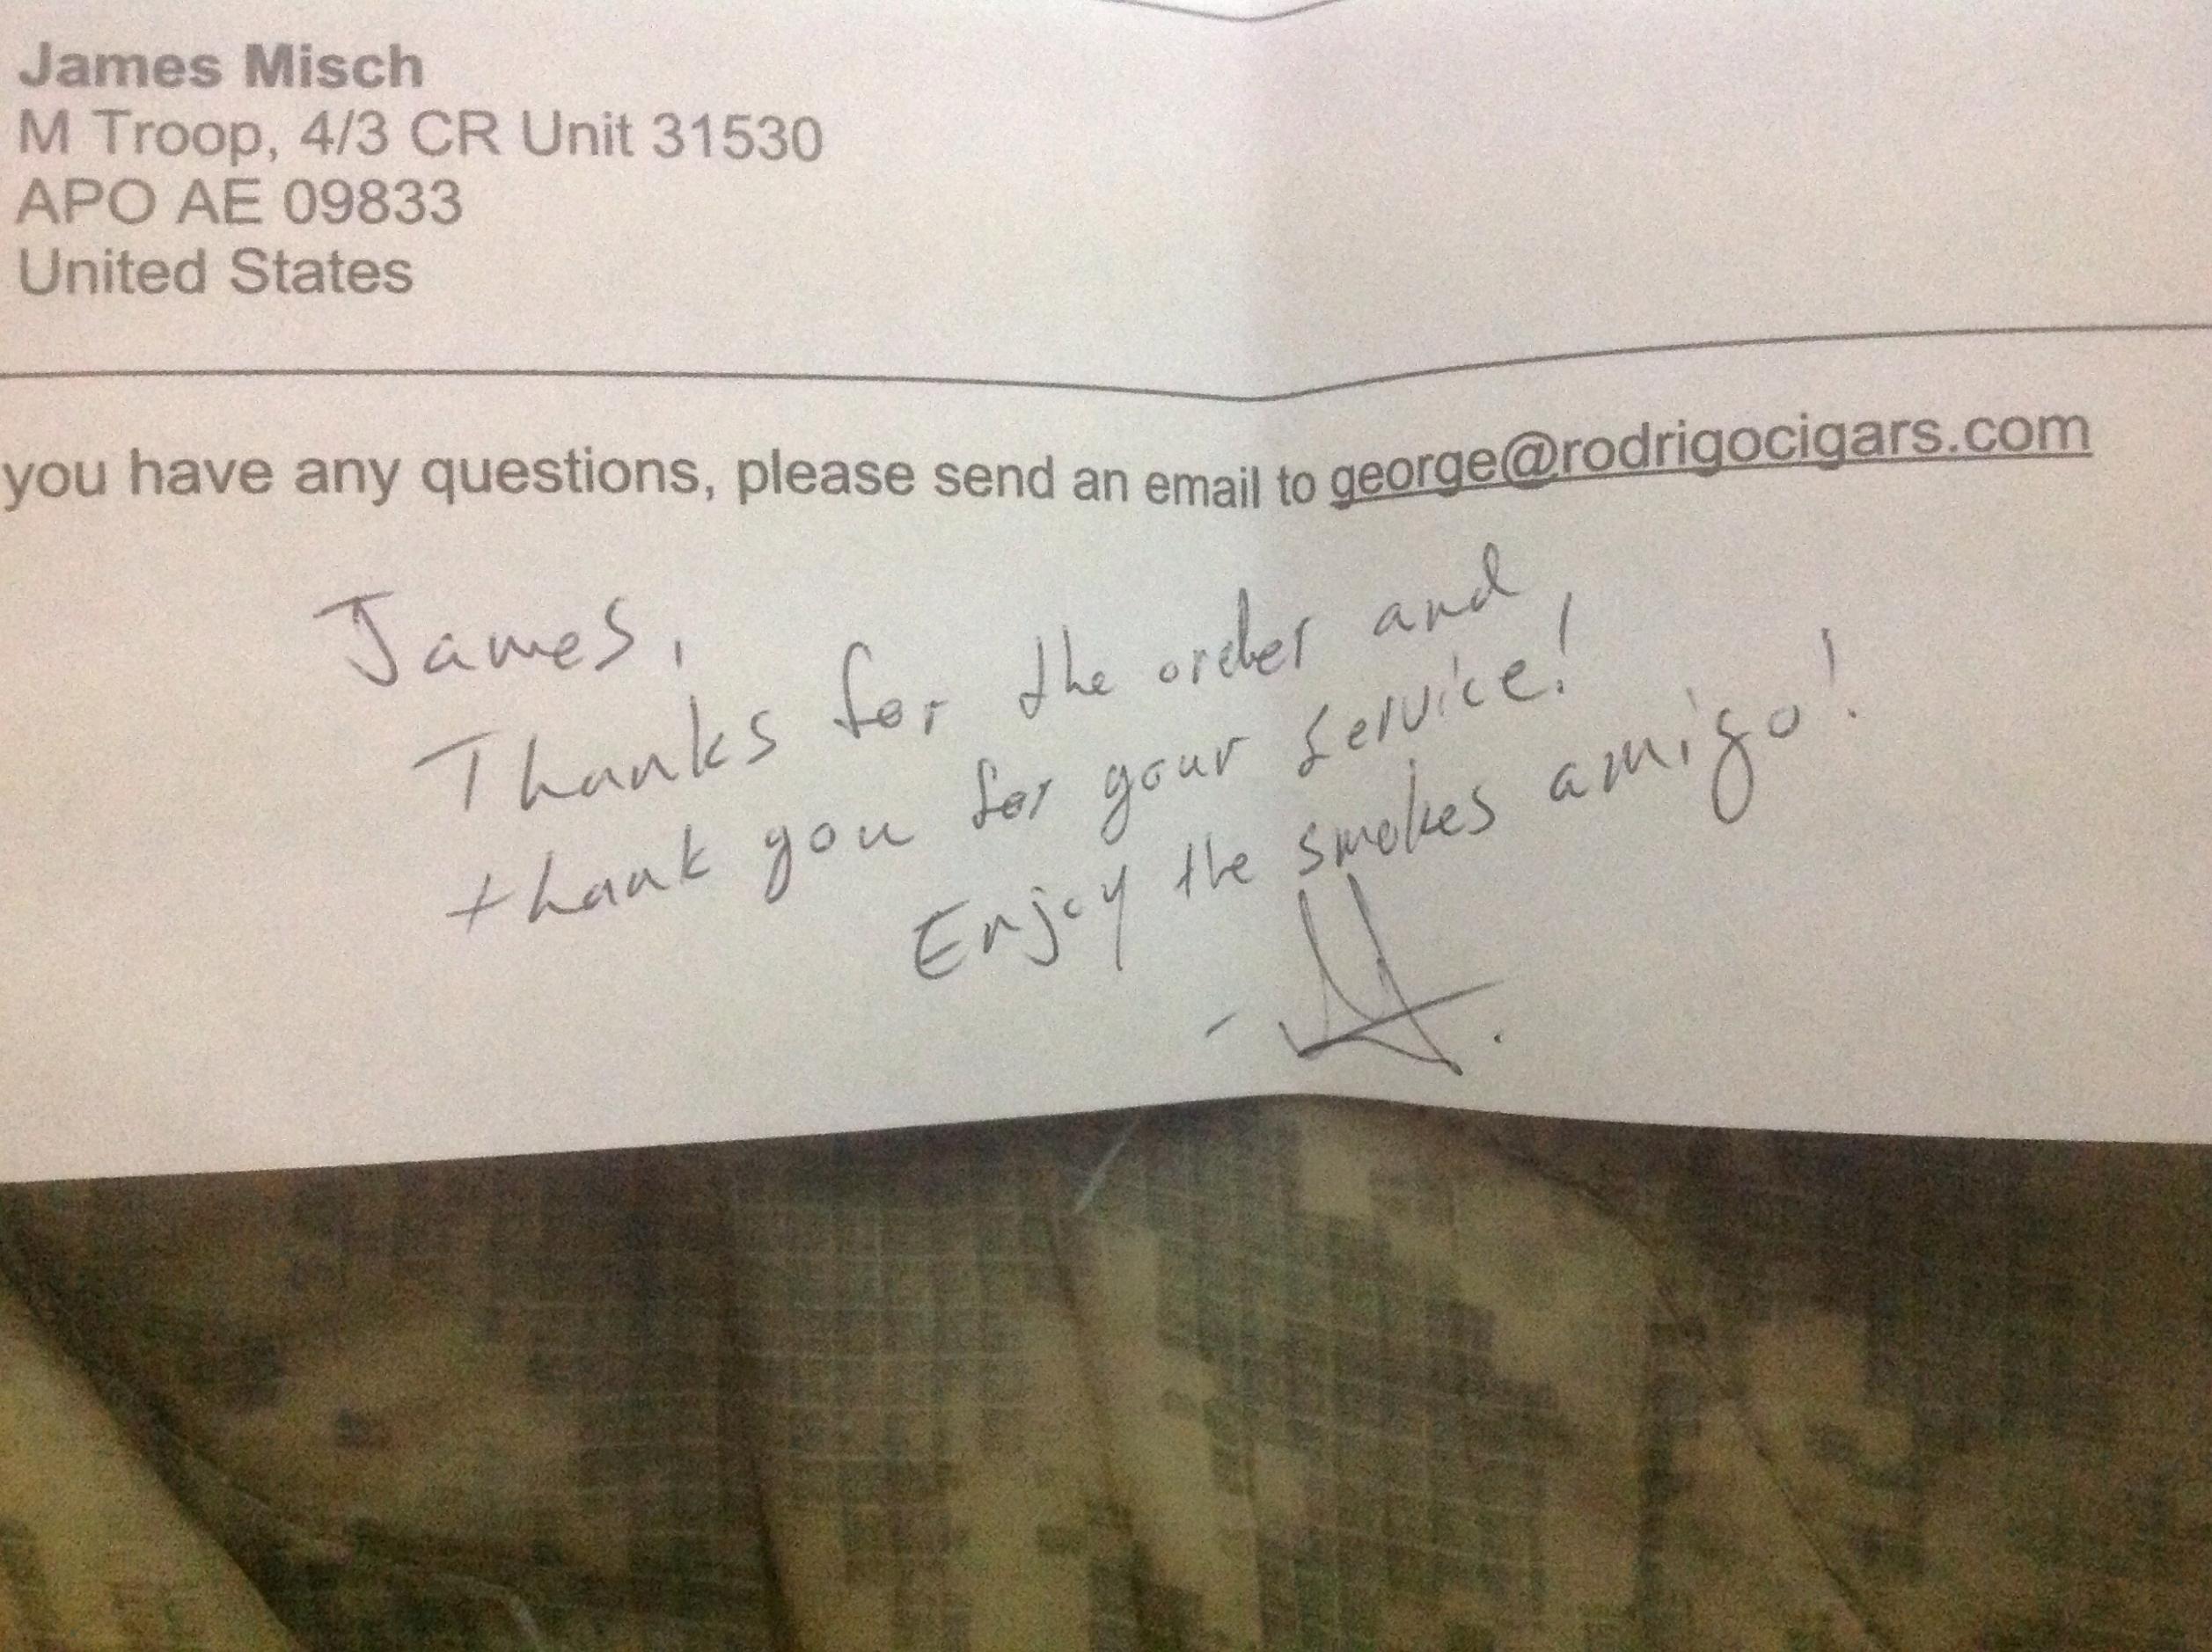 James Misch
M Troop, 4/3 CR Unit 31530
APO AE 09833
United States
you have any questions, please send an email to george@rodrigocigars.com
James,
Thanks for the order and
thank you for your service!
Enjoy the smokes amigo!